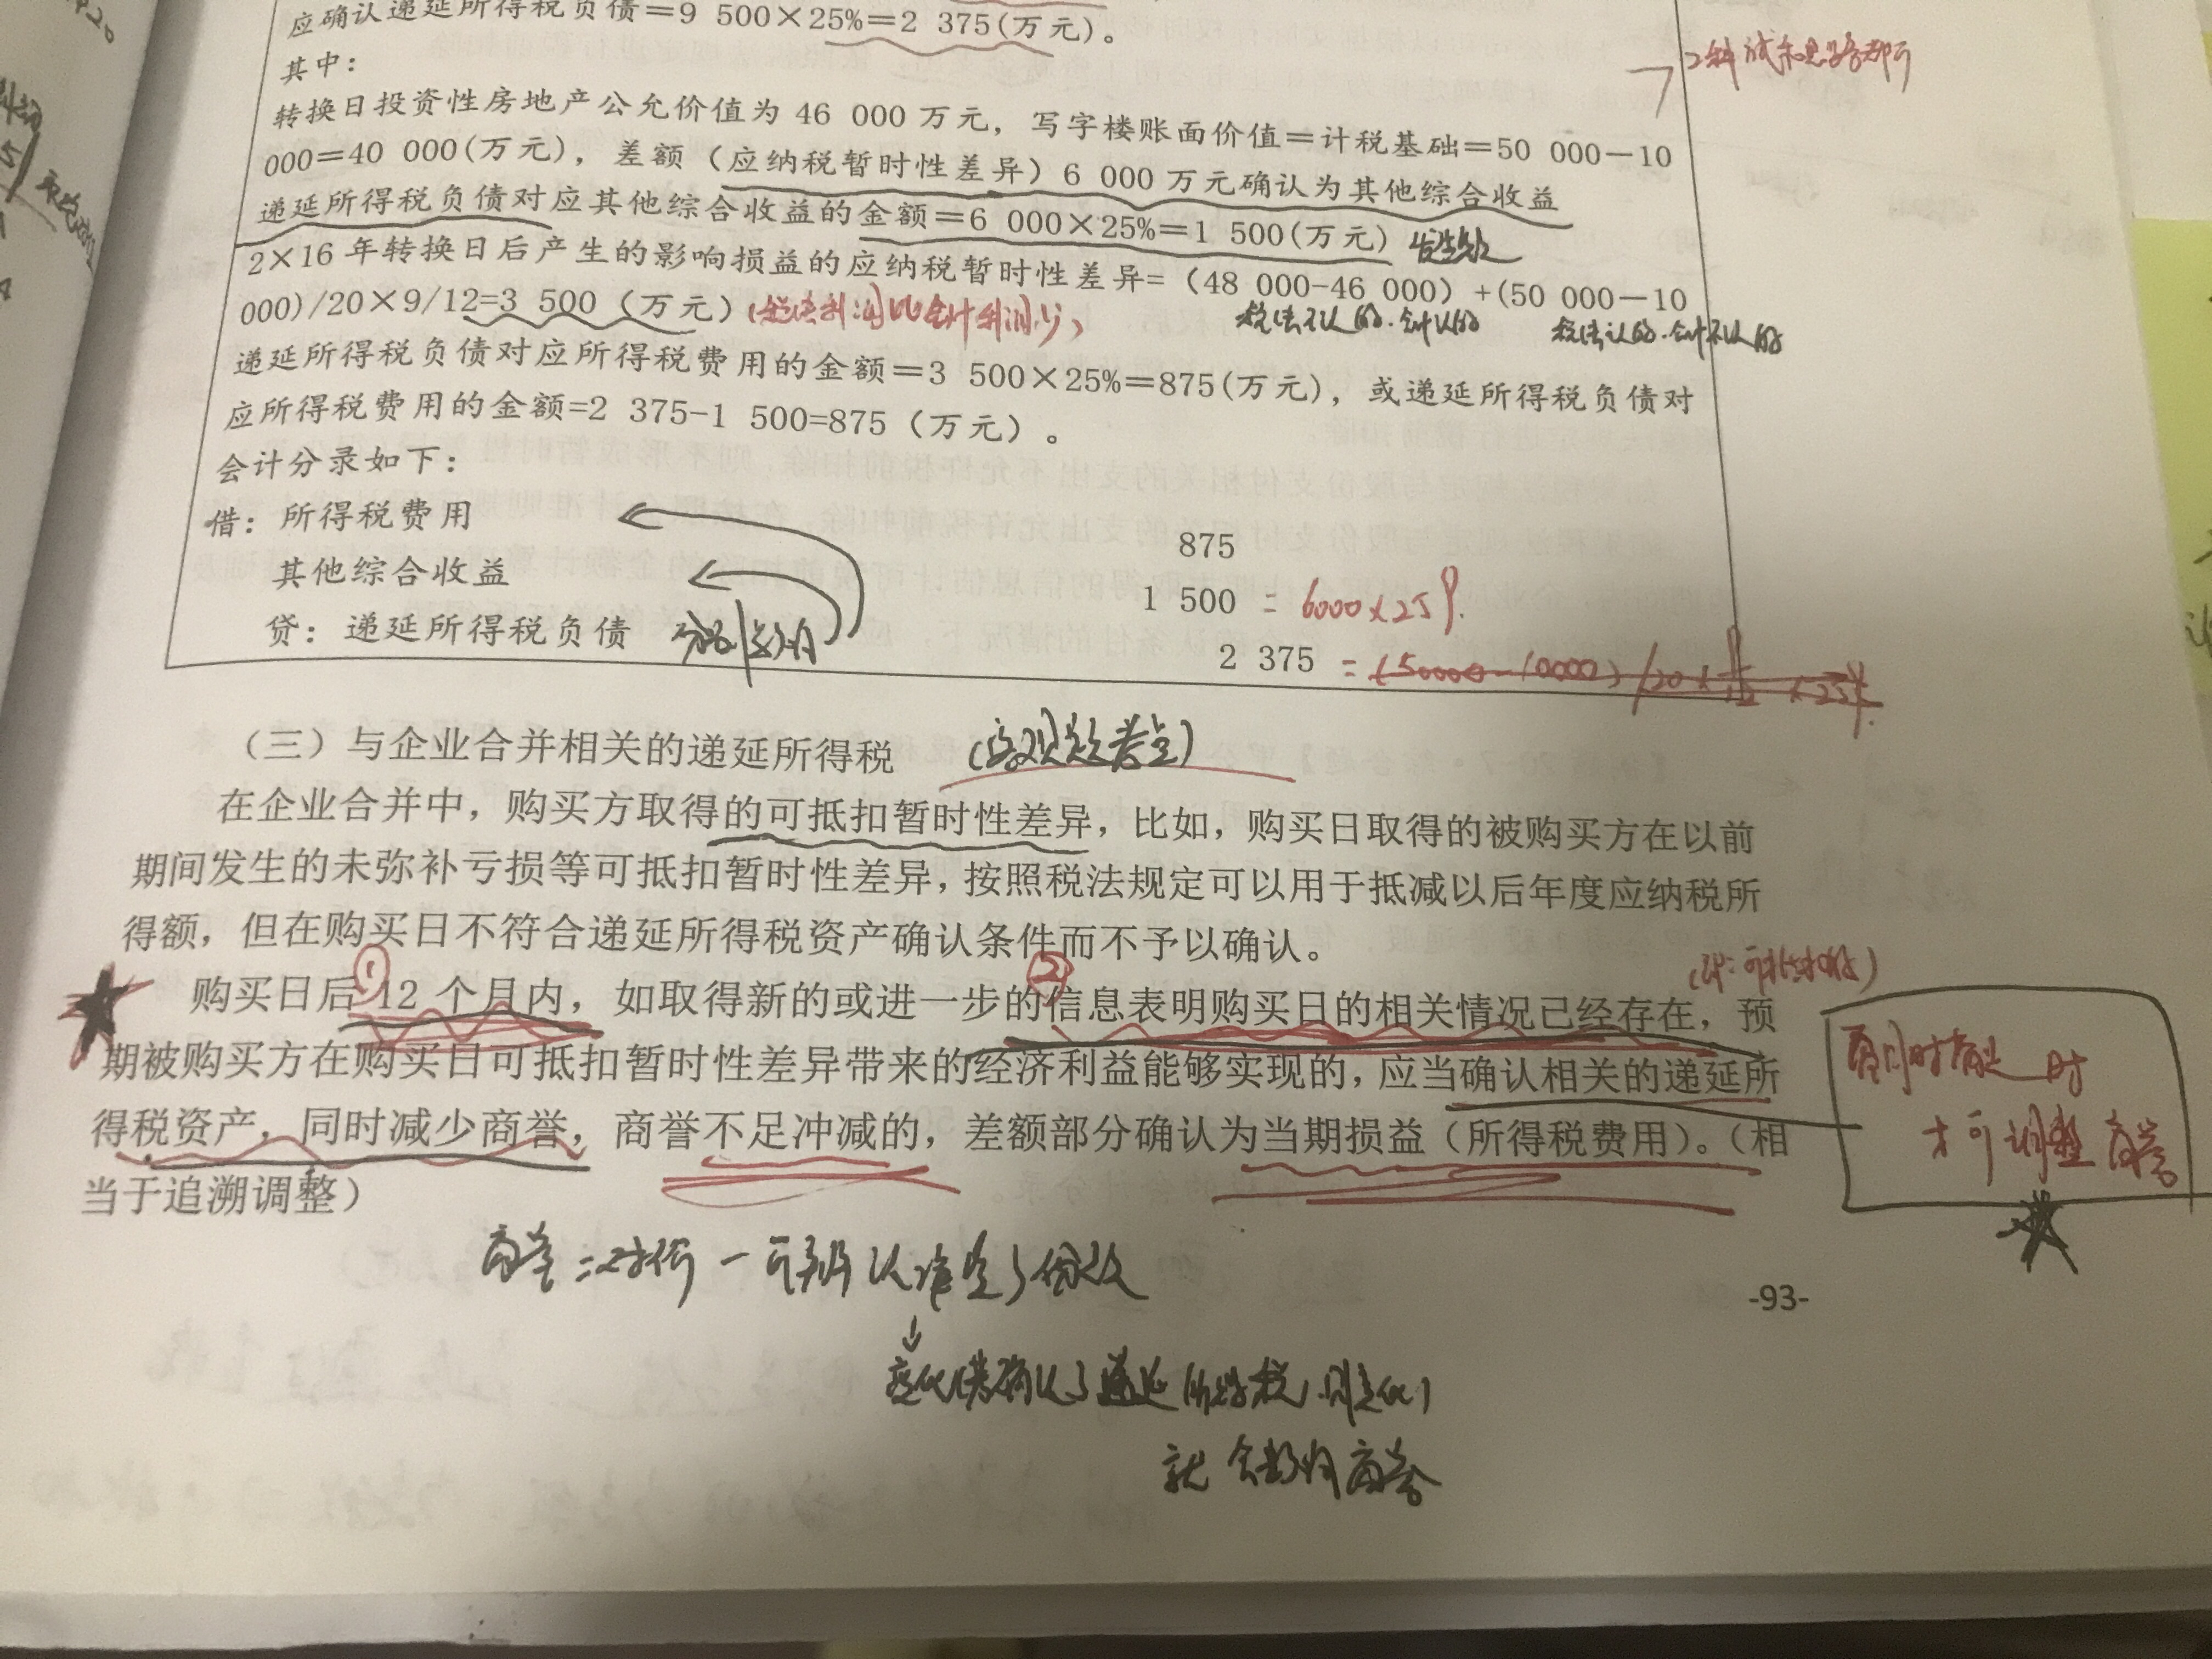 应确认递延所得税负债＝9 500×25%＝2 375(万元)。
其中：
转换日投资性房地产公允价值为 46 000 万元，写字楼账面价值＝计税基础＝50 000－10
000＝40 000(万元)，差额（应纳税暂时性差异）6 000 万元确认为其他综合收益
递延所得税负债对应其他综合收益的金额＝6 000×25%＝1 500(万元)
2×16 年转换日后产生的影响损益的应纳税暂时性差异=（48 000-46 000）+(50 000－10
000)/20×9/12=3 500（万元）(税法利润比会计利润少)
税法不认的.会计认的 税法认的.会计不认的
递延所得税负债对应所得税费用的金额＝3 500×25%＝875(万元)，或递延所得税负债对
应所得税费用的金额=2 375-1 500=875（万元）。
会计分录如下：
借：所得税费用 875
其他综合收益 1 500 = 6000×25%.
贷：递延所得税负债 2 375 = (50000-10000)/20×
（三）与企业合并相关的递延所得税 (客观题考点)
在企业合并中，购买方取得的可抵扣暂时性差异，比如，购买日取得的被购买方在以前
期间发生的未弥补亏损等可抵扣暂时性差异，按照税法规定可以用于抵减以后年度应纳税所
得额，但在购买日不符合递延所得税资产确认条件而不予以确认。
① ②
购买日后 12 个月内，如取得新的或进一步的信息表明购买日的相关情况已经存在，预
期被购买方在购买日可抵扣暂时性差异带来的经济利益能够实现的，应当确认相关的递延所
得税资产，同时减少商誉，商誉不足冲减的，差额部分确认为当期损益（所得税费用）。（相
当于追溯调整）
需同时满足 时
才可调整商誉
商誉=对价－可辨认净资产份额
↓
所得税
就会影响商誉
-93-